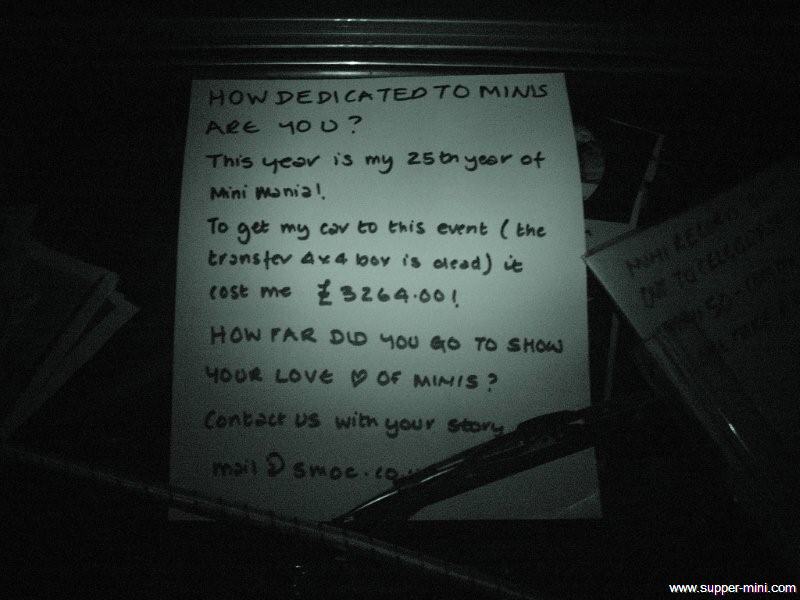 HOW DEDICATED TO MINIS
ARE YOU?
This year is my 25th year of
Mini Mania!
To get my car to this event (the
transfer 4x4 box is dead) it
cost me £3264.00!
HOW FAR DID YOU GO TO SHOW
YOUR LOVE ♡ OF MINIS?
Contact us with your story
mail@smoc.co
MINI RECORD
www.supper-mini.com